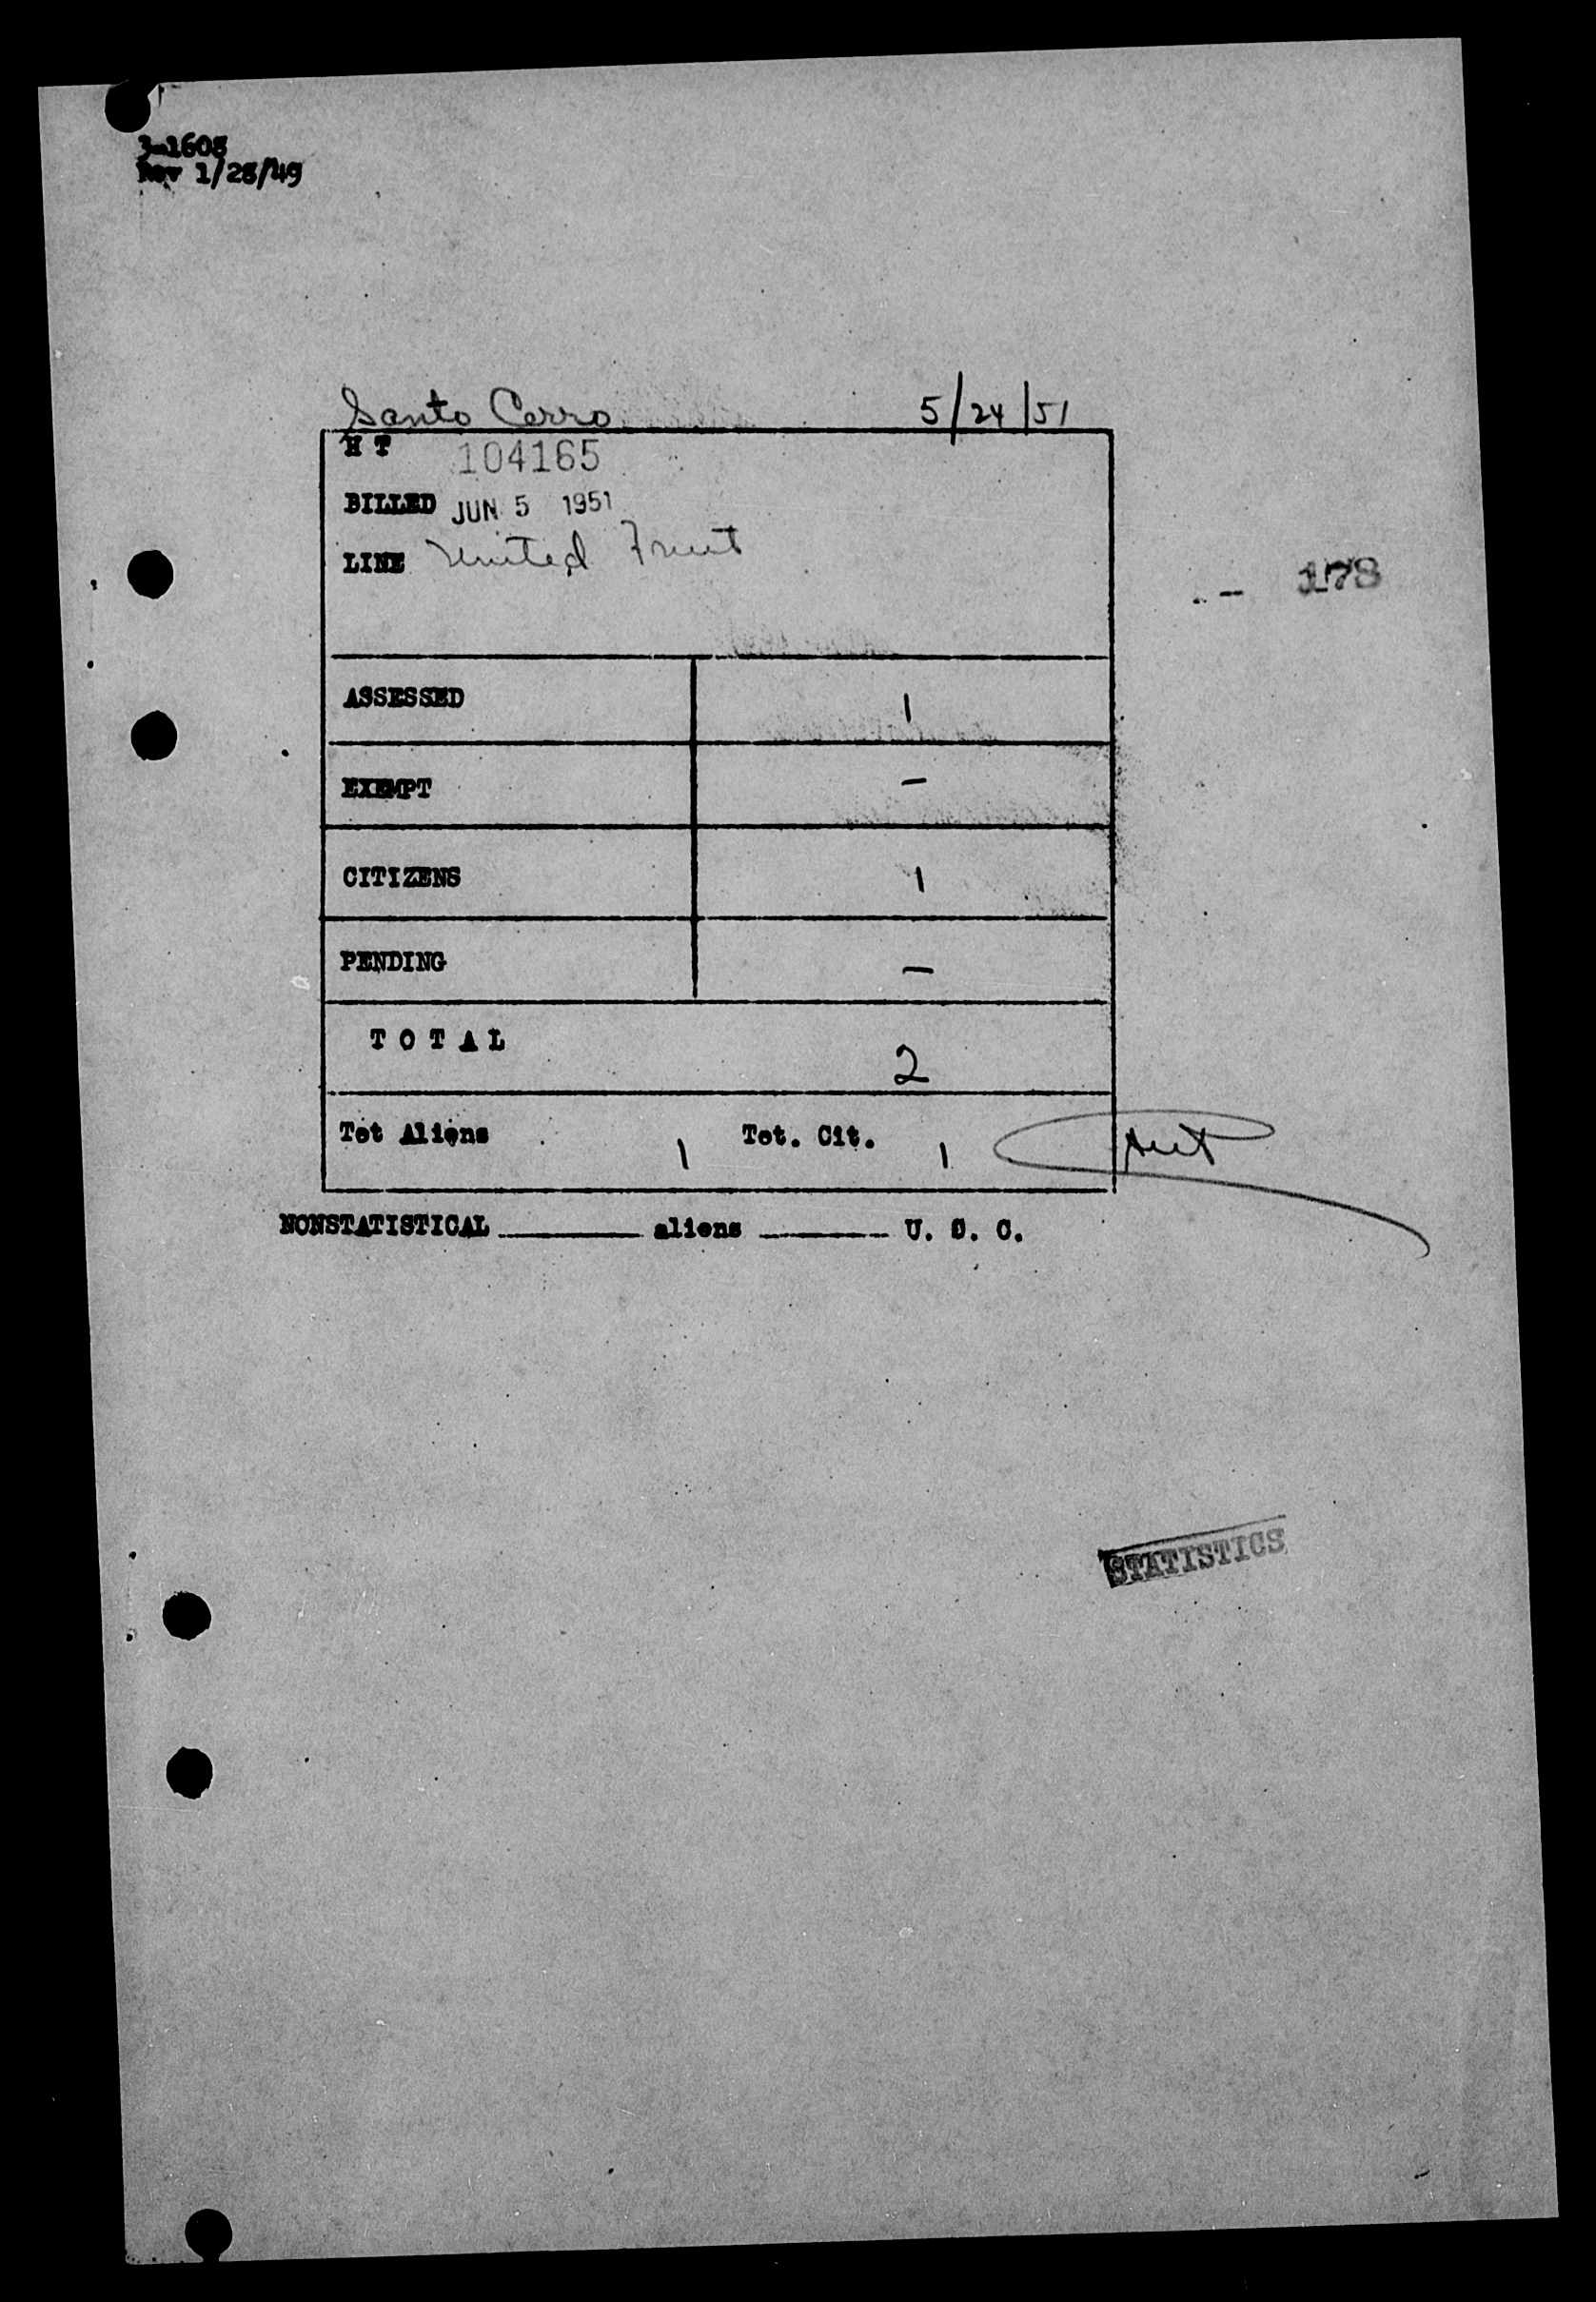 3-1608
Rev 1/28/49
Santo Cerro 5/24/51
H T 104165
BILLED JUN 5 1951
LINE United Fruit
178
ASSESSED 1
EXEMPT -
CITIZENS 1
PENDING -
TOTAL 2
Tot Aliens 1 Tot. Cit. 1
NONSTATISTICAL ________ aliens ________ U. S. C.
STATISTICS